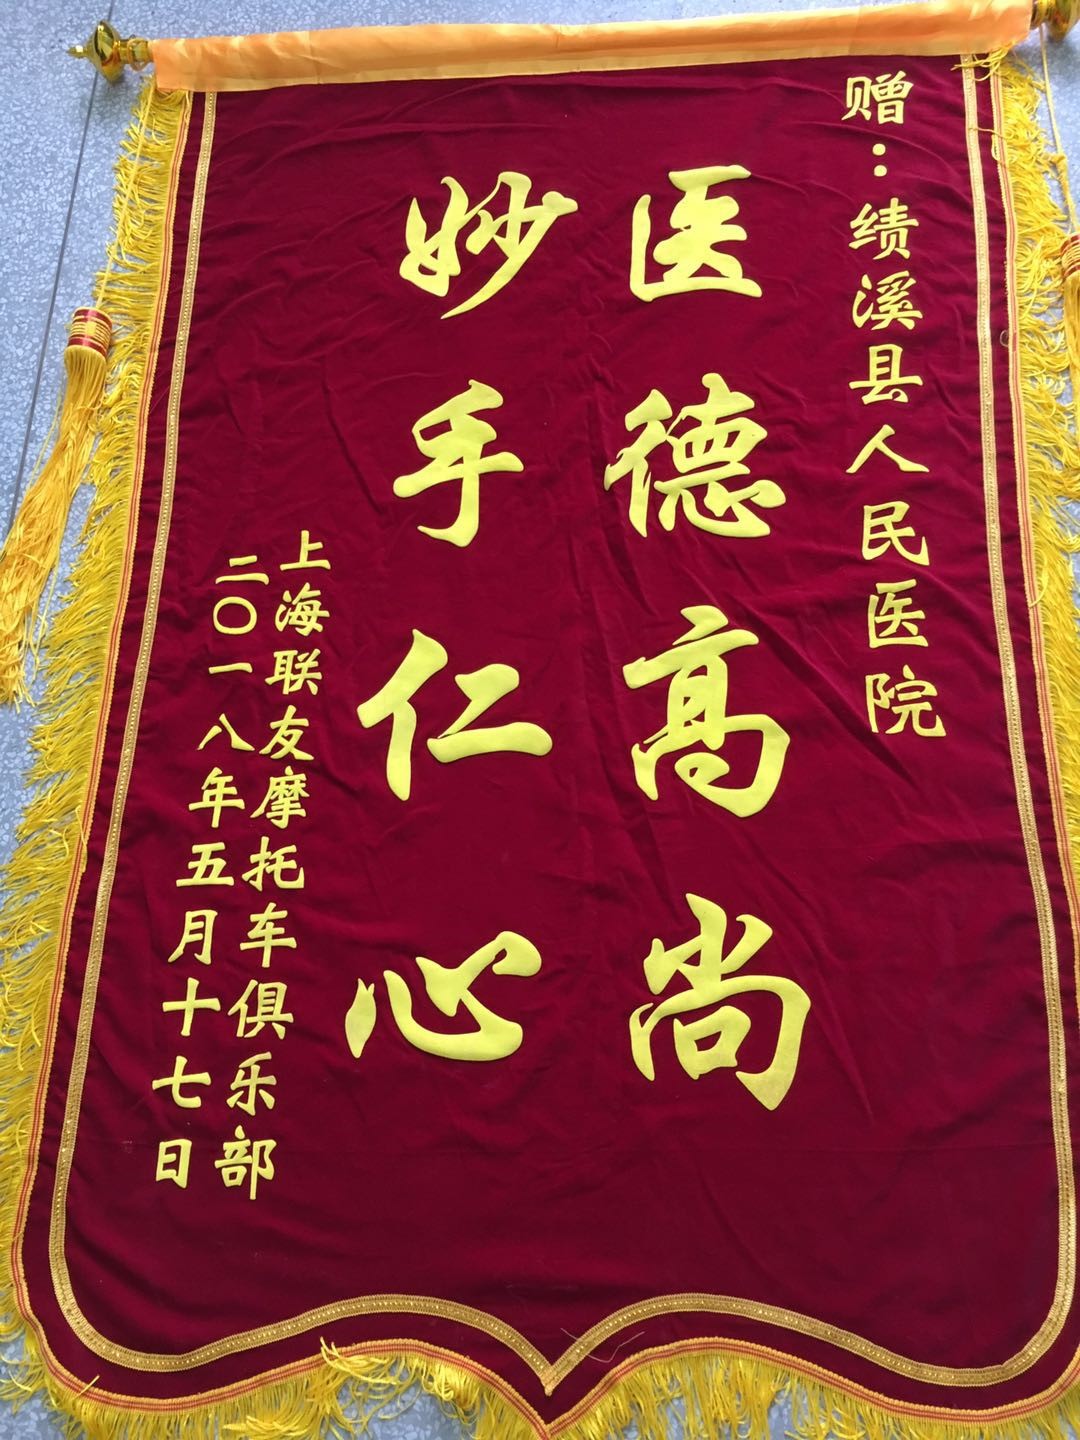 赠：绩溪县人民医院
医德高尚
妙手仁心
上海联友摩托车俱乐部
二〇一八年五月十七日